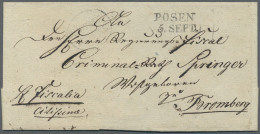 An
POSEN
4. SEPT.
den Herrn Regierungs Fiscal
Criminal-Rath Springer
Wohlgeboren
zu
Bromberg
Fiscalia
citissima